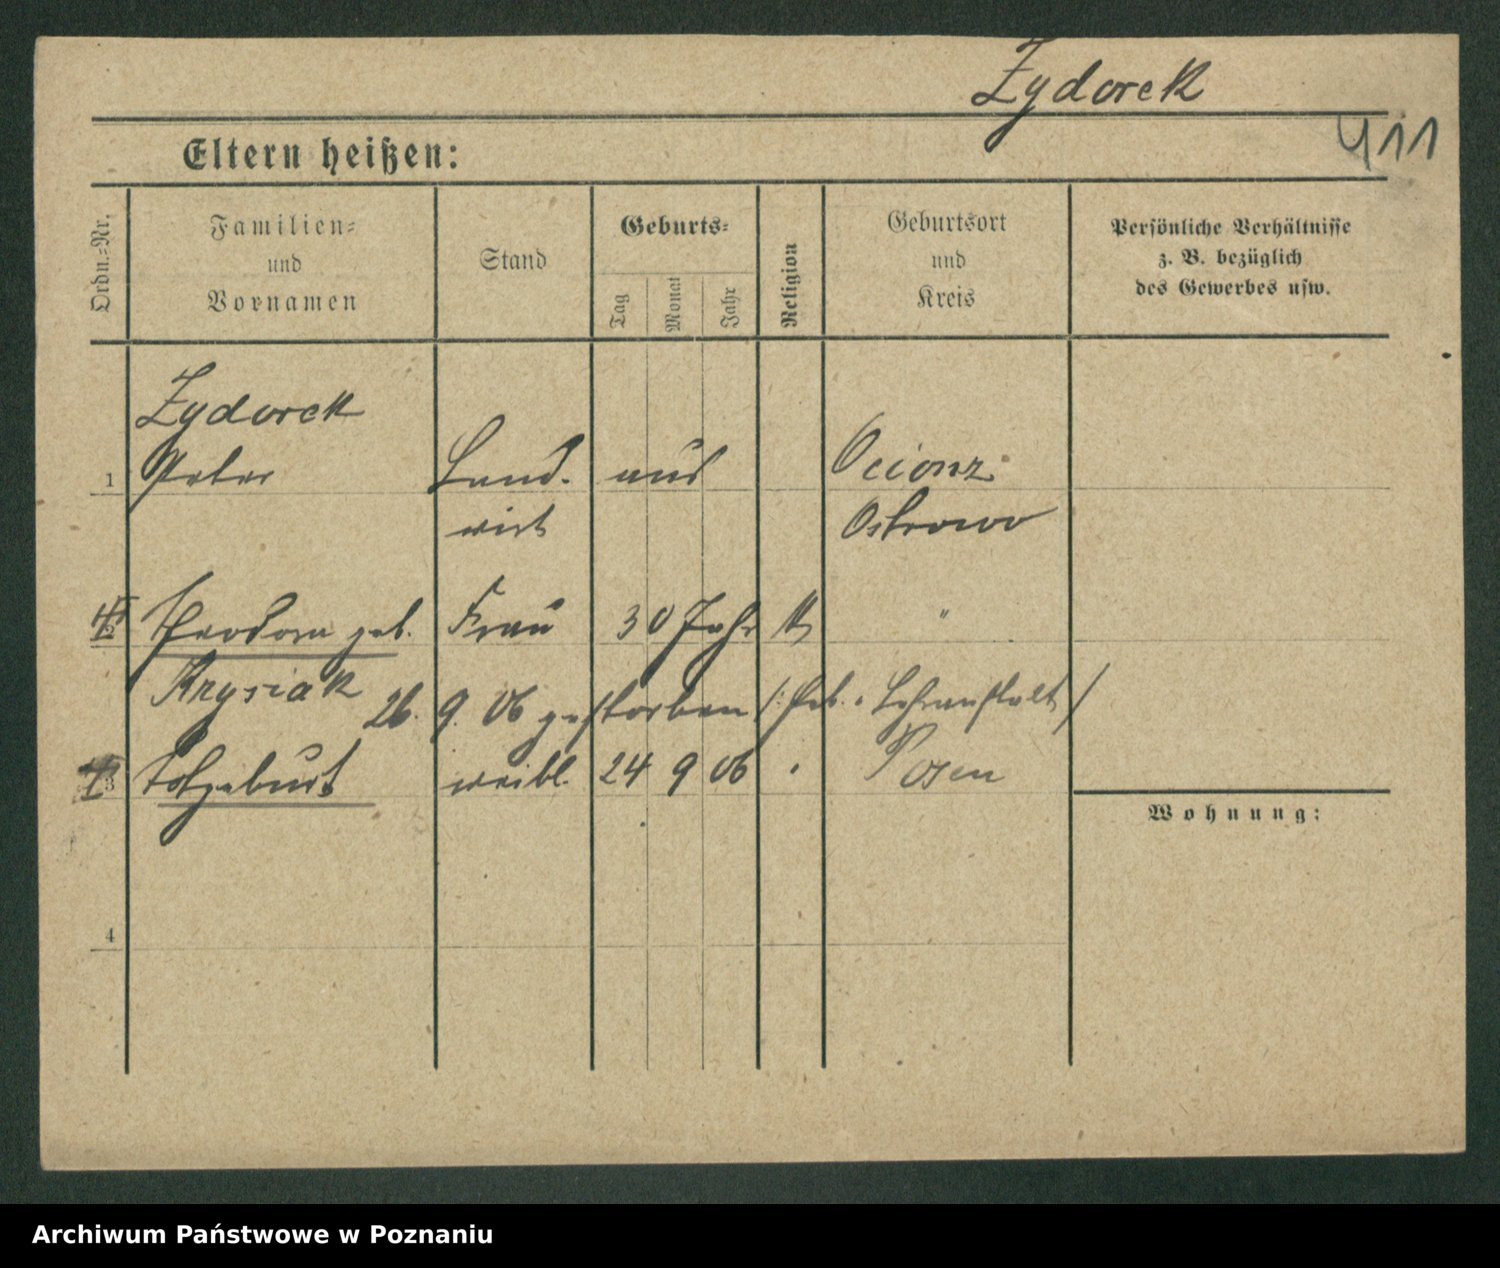 Zydorek
411
Eltern heißen:
Ordn.-Nr.
Familien-
und
Vornamen
Stand
Geburts-
Tag
Monat
Jahr
Religion
Geburtsort
und
Kreis
Persönliche Verhältnisse
z. B. bezüglich
des Gewerbes usw.
Zydorek
1 Peter Land- aus Ocionz
wirt Ostrowo
2 Theodora geb. Frau 30 Jahr k "
Krysiak
26. 9. 06 gestorben /: Heb. Lehranstalt /
3 Totgeburt weibl. 24 9 06 " Posen
Wohnung:
4
Archiwum Państwowe w Poznaniu